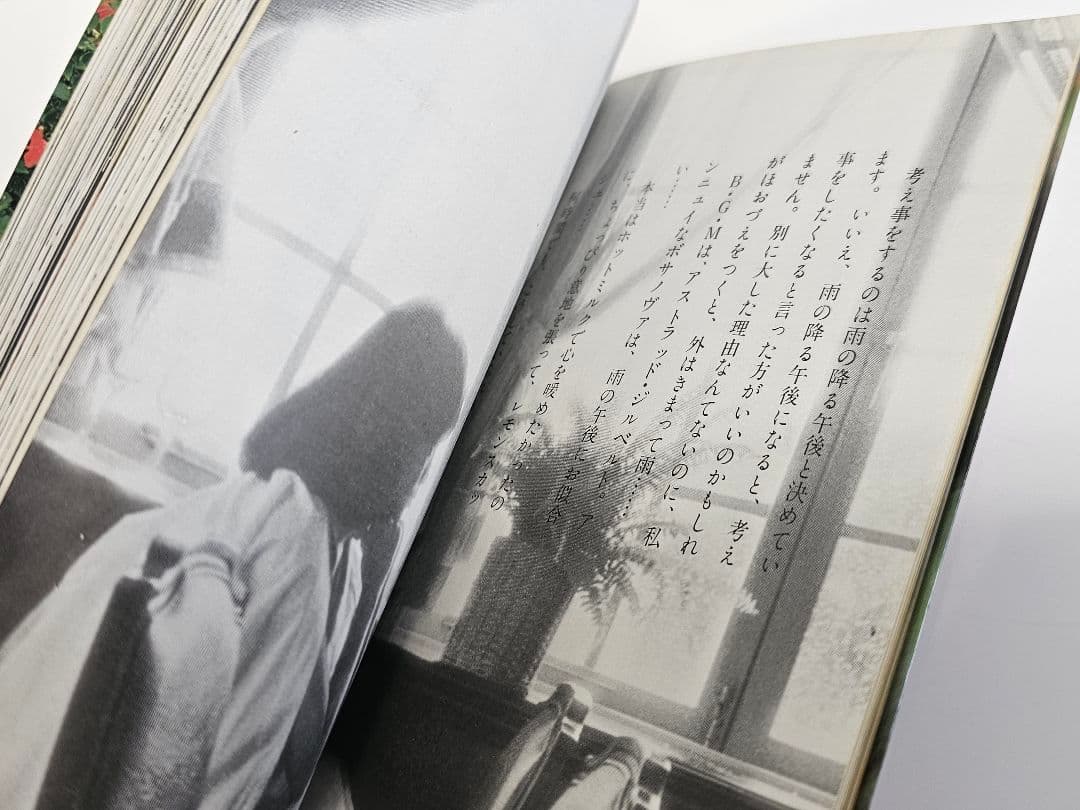 考え事をするのは雨の降る午後と決めてい
ます。いいえ、雨の降る午後になると、考え
事をしたくなると言った方がいいのかもしれ
ません。別に大した理由なんてないのに、私
がほおづえをつくと、外はきまって雨……
B・G・Mは、アストラッド・ジルベルト。ア
ンニュイなボサノヴァは、雨の午後にお似合
い……
本当はホットミルクで心を暖めたかったの
に、ちょっぴり意地を張って、レモンスカッ
シュ……